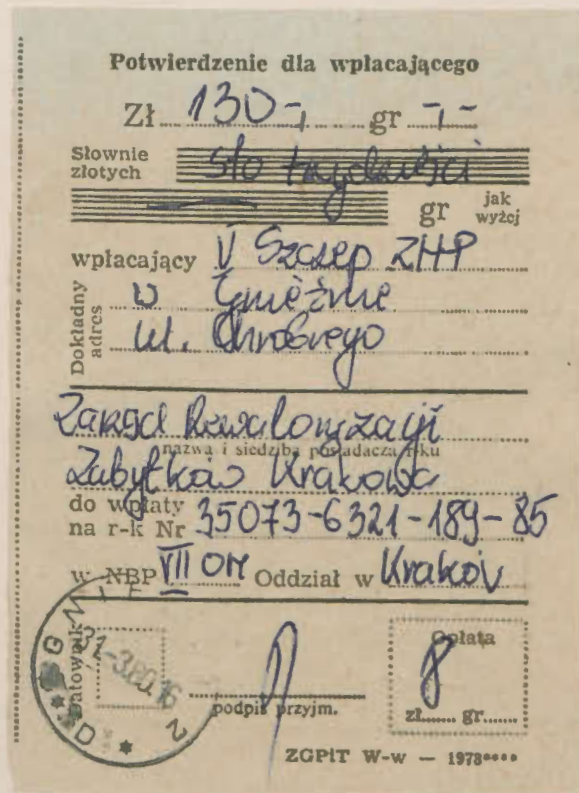 Potwierdzenie dla wpłacającego
Zł 130-, gr -,-
Słownie złotych sto trzydzieści
gr jak wyżej
wpłacający V Szczep ZHP
Dokładny adres w Gnieźnie
ul. Chrobrego
Zarząd Rewaloryzacji
nazwa i siedziba posiadacza r-ku
Zabytków Krakowa
do wpłaty
na r-k Nr 35073-6321-189-85
w NBP VII OM Oddział w Kraków
Datownik
31-3.80.16
podpis przyjm.
Opłata
8
zł gr
ZGPiT W-w — 1978****